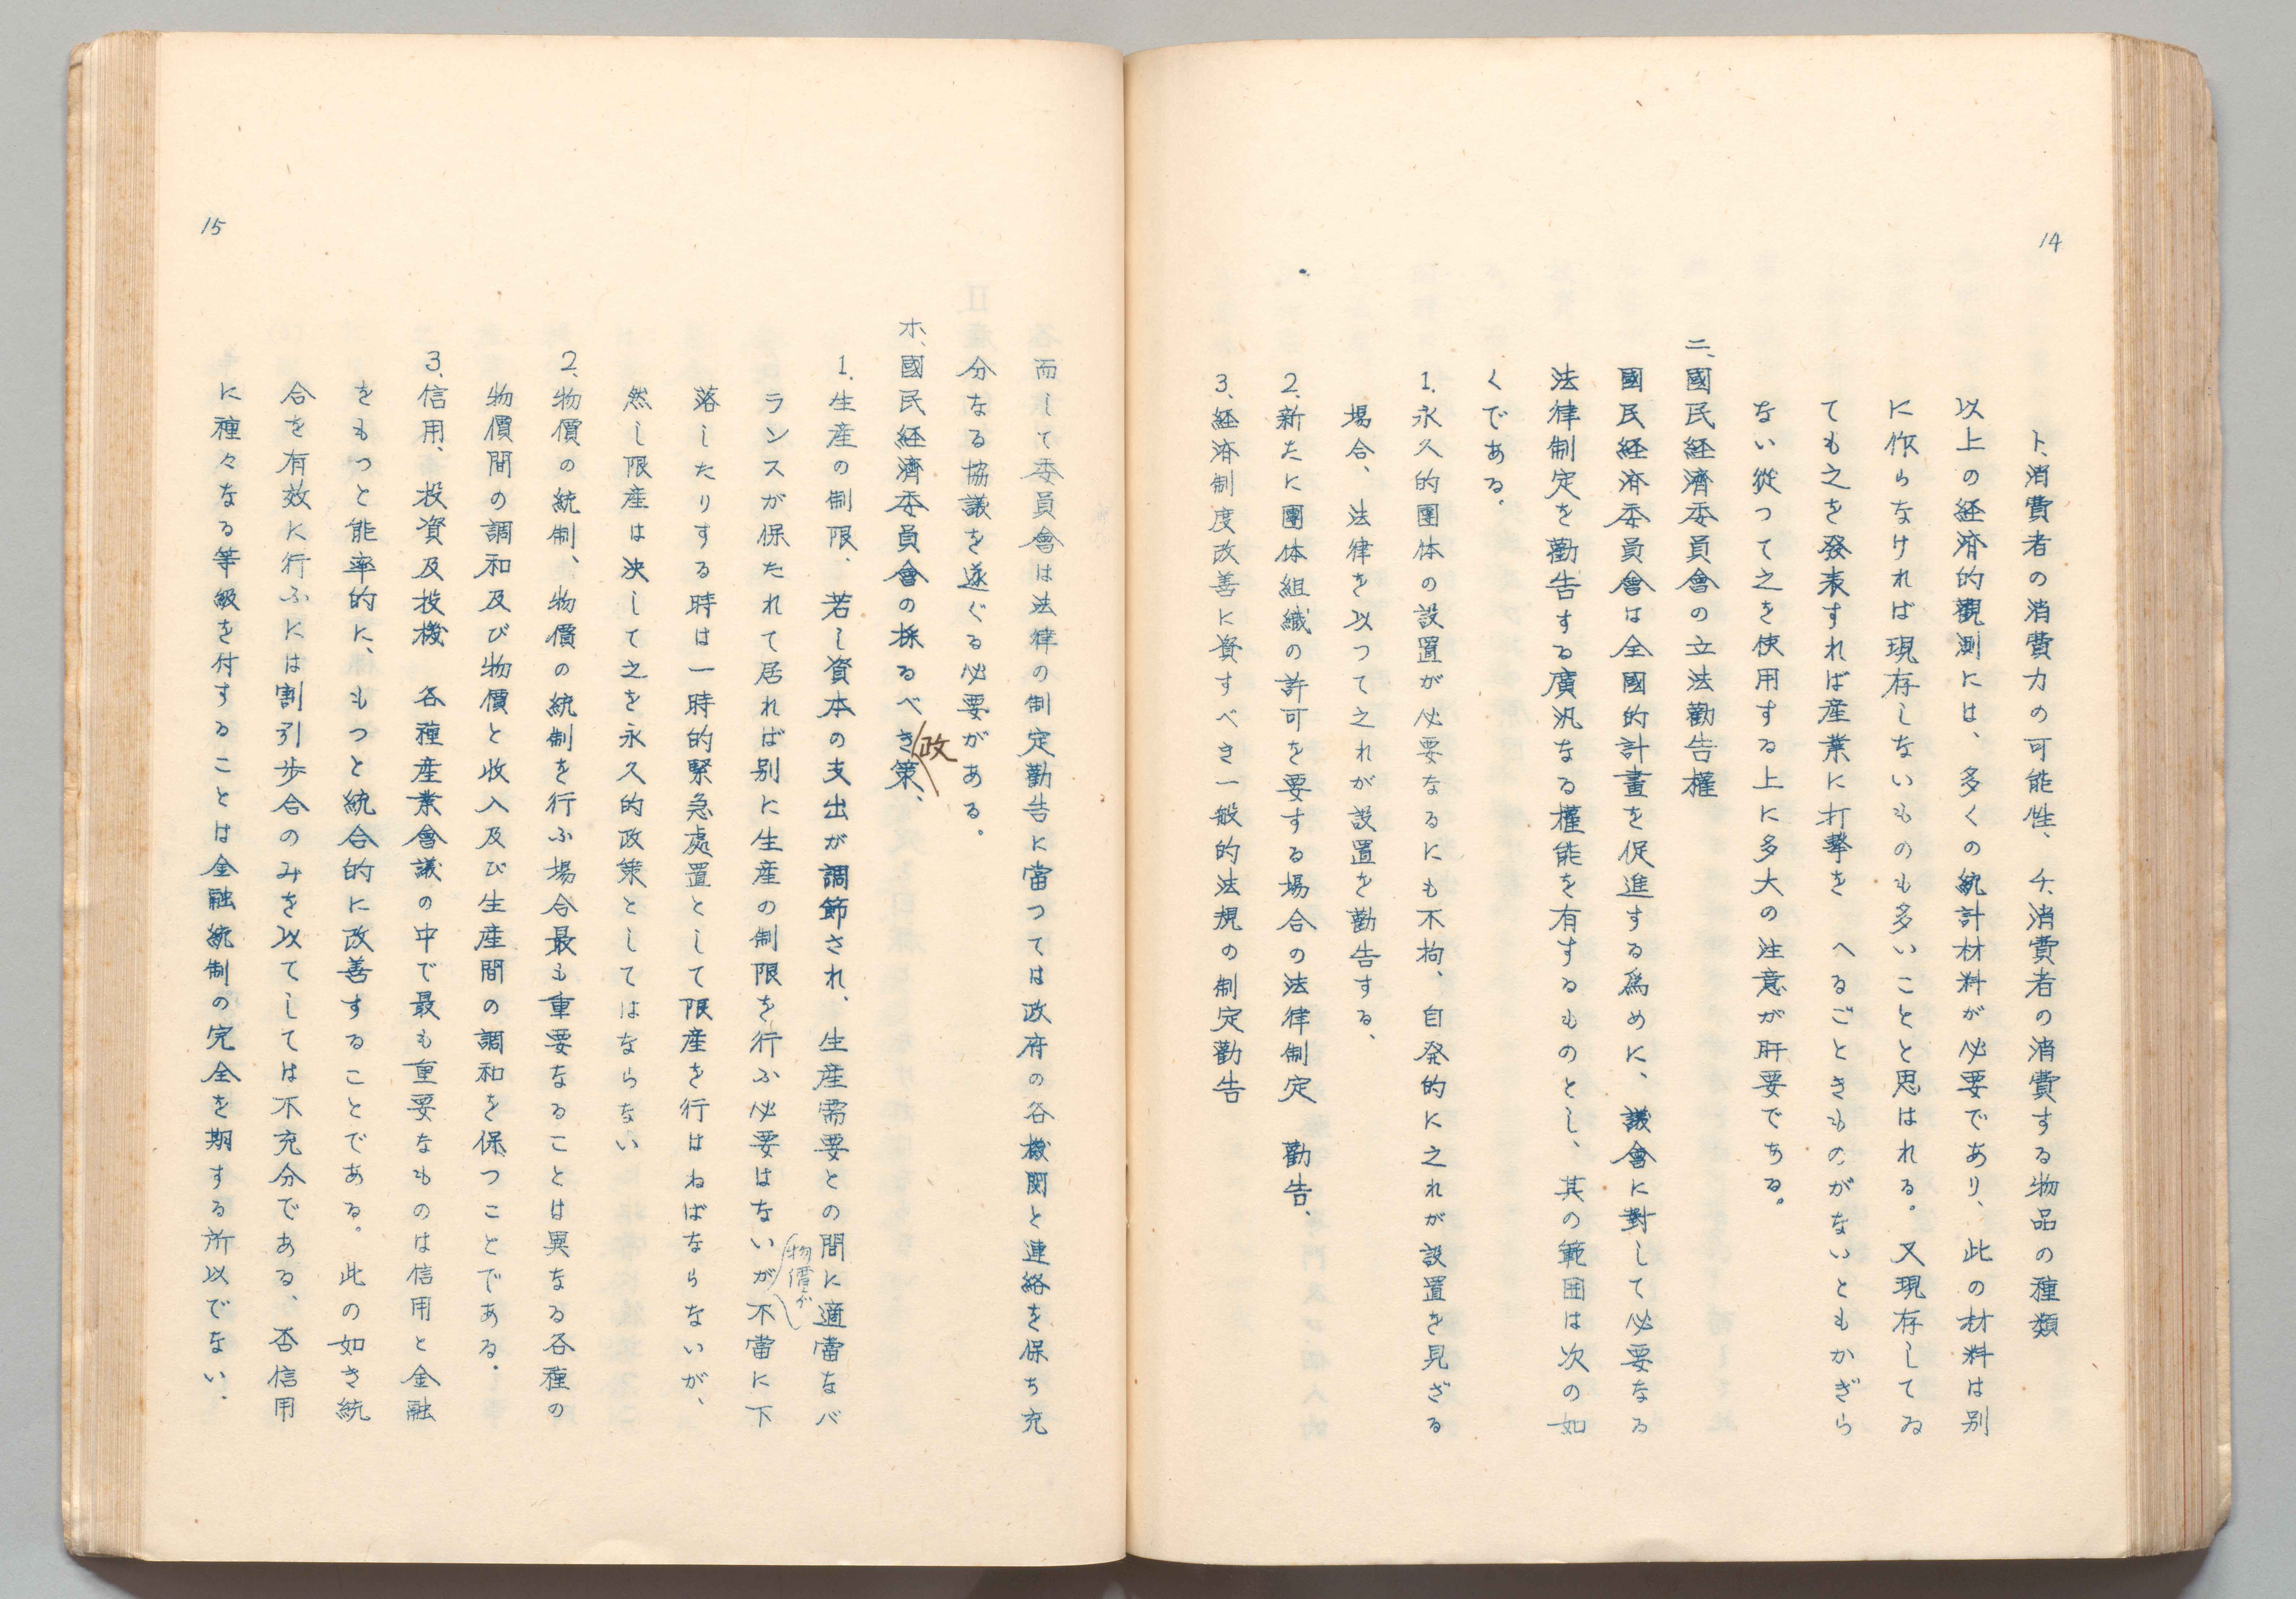 14
ト、消費者の消費力の可能性、 チ、消費者の消費する物品の種類
以上の経済的観測には、多くの統計材料が必要であり、此の材料は別
に作らなければ現存しないものも多いことと思はれる。又現存してゐ
ても之を發表すれば産業に打撃を へるごときものがないともかぎら
ない從つて之を使用する上に多大の注意が肝要である。
ニ、國民経濟委員會の立法勸告權
國民経済委員會は全國的計畫を促進する爲めに、議會に對して必要なる
法律制定を勸告する廣汎なる權能を有するものとし、其の範囲は次の如
くである。
1.永久的團体の設置が必要なるにも不拘、自発的に之れが設置を見ざる
場合、法律を以つて之れが設置を勸告する、
2.新たに團体組織の許可を要する場合の法律制定 勸告、
3.経済制度改善に資すべき一般的法規の制定勸告
15
而して委員會は法律の制定勸告に當つては政府の各機関と連絡を保ち充
分なる協議を遂ぐる必要がある。
ホ、國民経濟委員會の採るべき政策、
1.生産の制限、若し資本の支出が調節され、生産需要との間に適當なバ
ランスが保たれて居れば別に生産の制限を行ふ必要はないが物價が不當に下
落したりする時は一時的緊急處置として限産を行はねばならないが、
然し限産は決して之を永久的政策としてはならない
2.物價の統制、物價の統制を行ふ場合最も重要なることは異なる各種の
物價間の調和及び物價と收入及び生産間の調和を保つことである。
3.信用、投資及投機 各種産業會議の中で最も重要なものは信用と金融
をもつと能率的に、もつと統合的に改善することである。此の如き統
合を有效に行ふには割引歩合のみを以てしては不充分である、否信用
に種々なる等級を付することは金融統制の完全を期する所以でない、